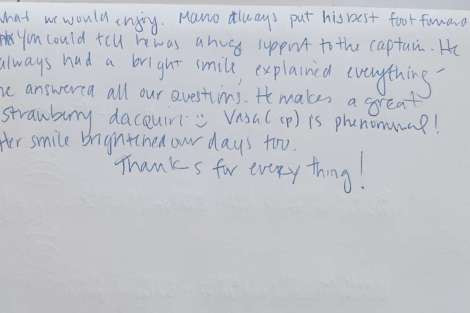 what we would enjoy. Mano always put his best foot forward
You could tell he was a huge support to the captain. He
always had a bright smile, explained everything -
he answered all our questions. He makes a great
strawberry dacquiri Vasa (sp) is phenominal!
Her smile brightened our days too.
Thanks for everything!